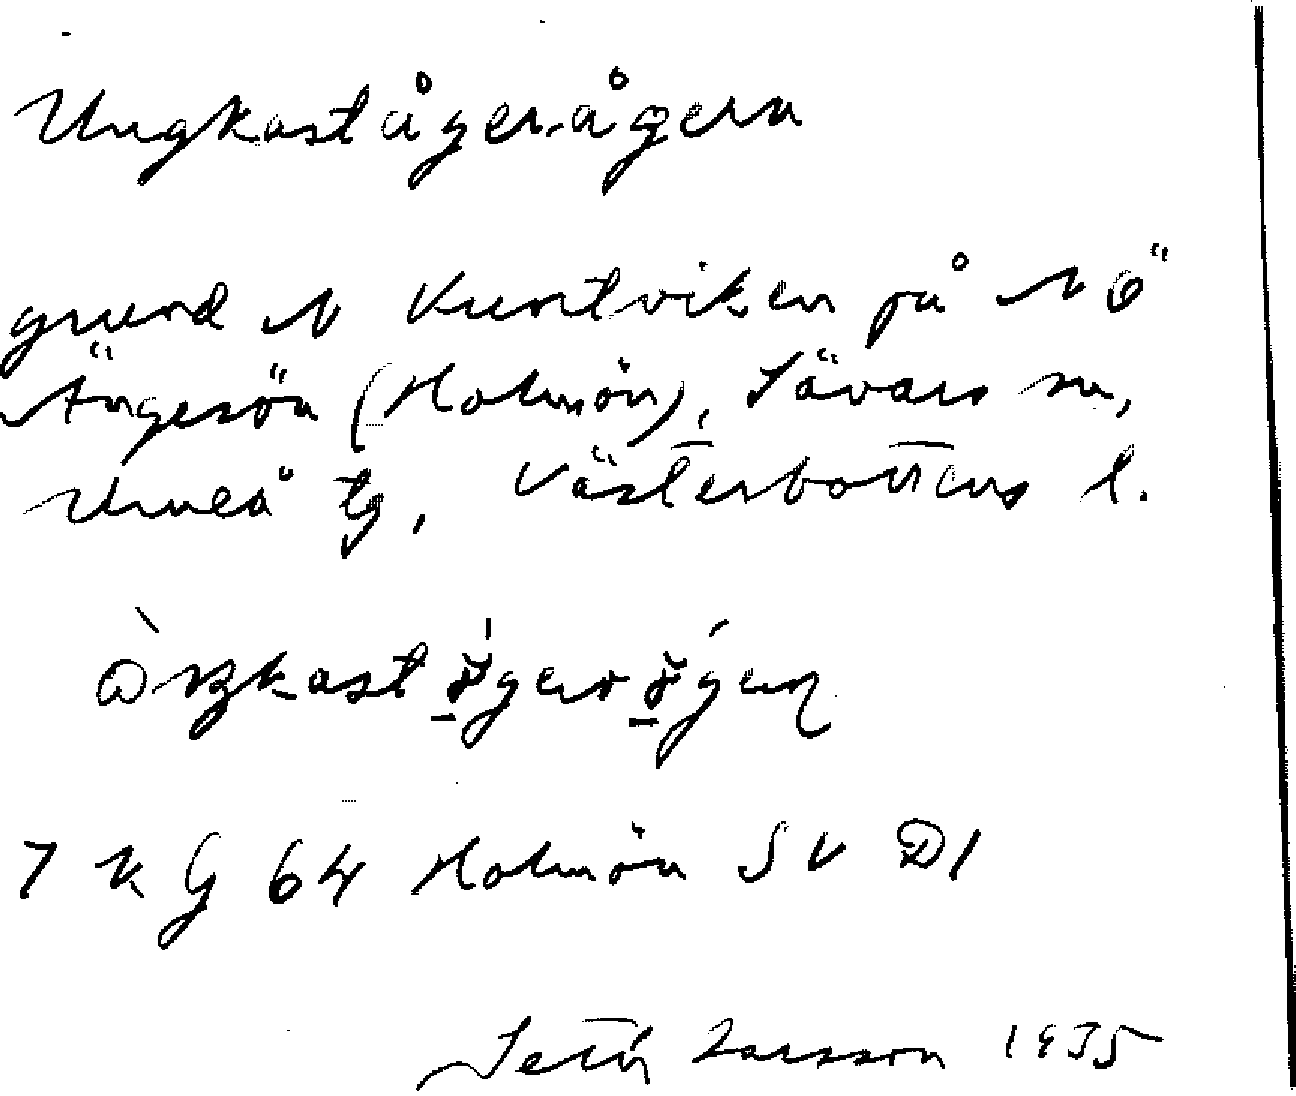 Ungkastågerågern
grund N Kuntviken på NÖ
Ängesön (Holmön), Sävars sn,
Umeå tg, Västerbottens l.
7 K G 64 Holmön SV D1
Set Larsson 1935